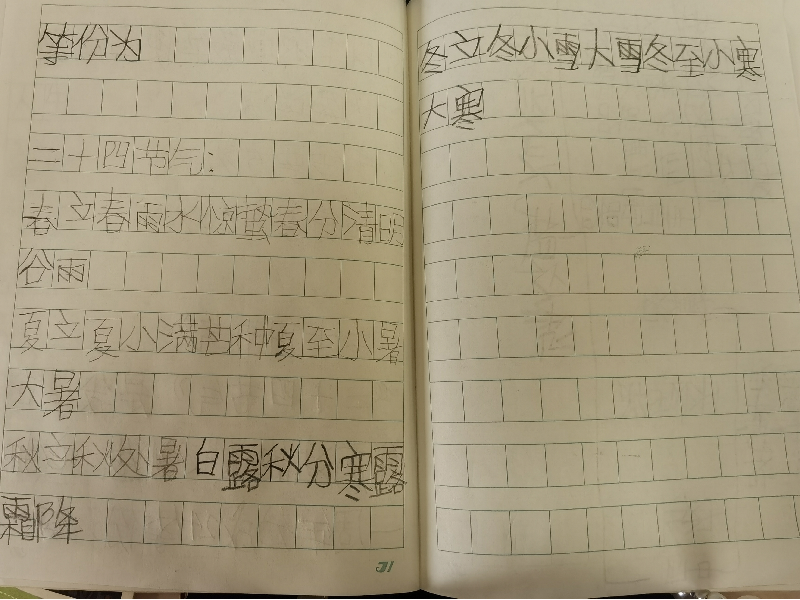 等份为
二十四节气:
春立春雨水惊蛰春分清明
谷雨
夏立夏小满芒种夏至小暑
大暑
秋立秋处暑白露秋分寒露
霜降
冬立冬小雪大雪冬至小寒
大寒